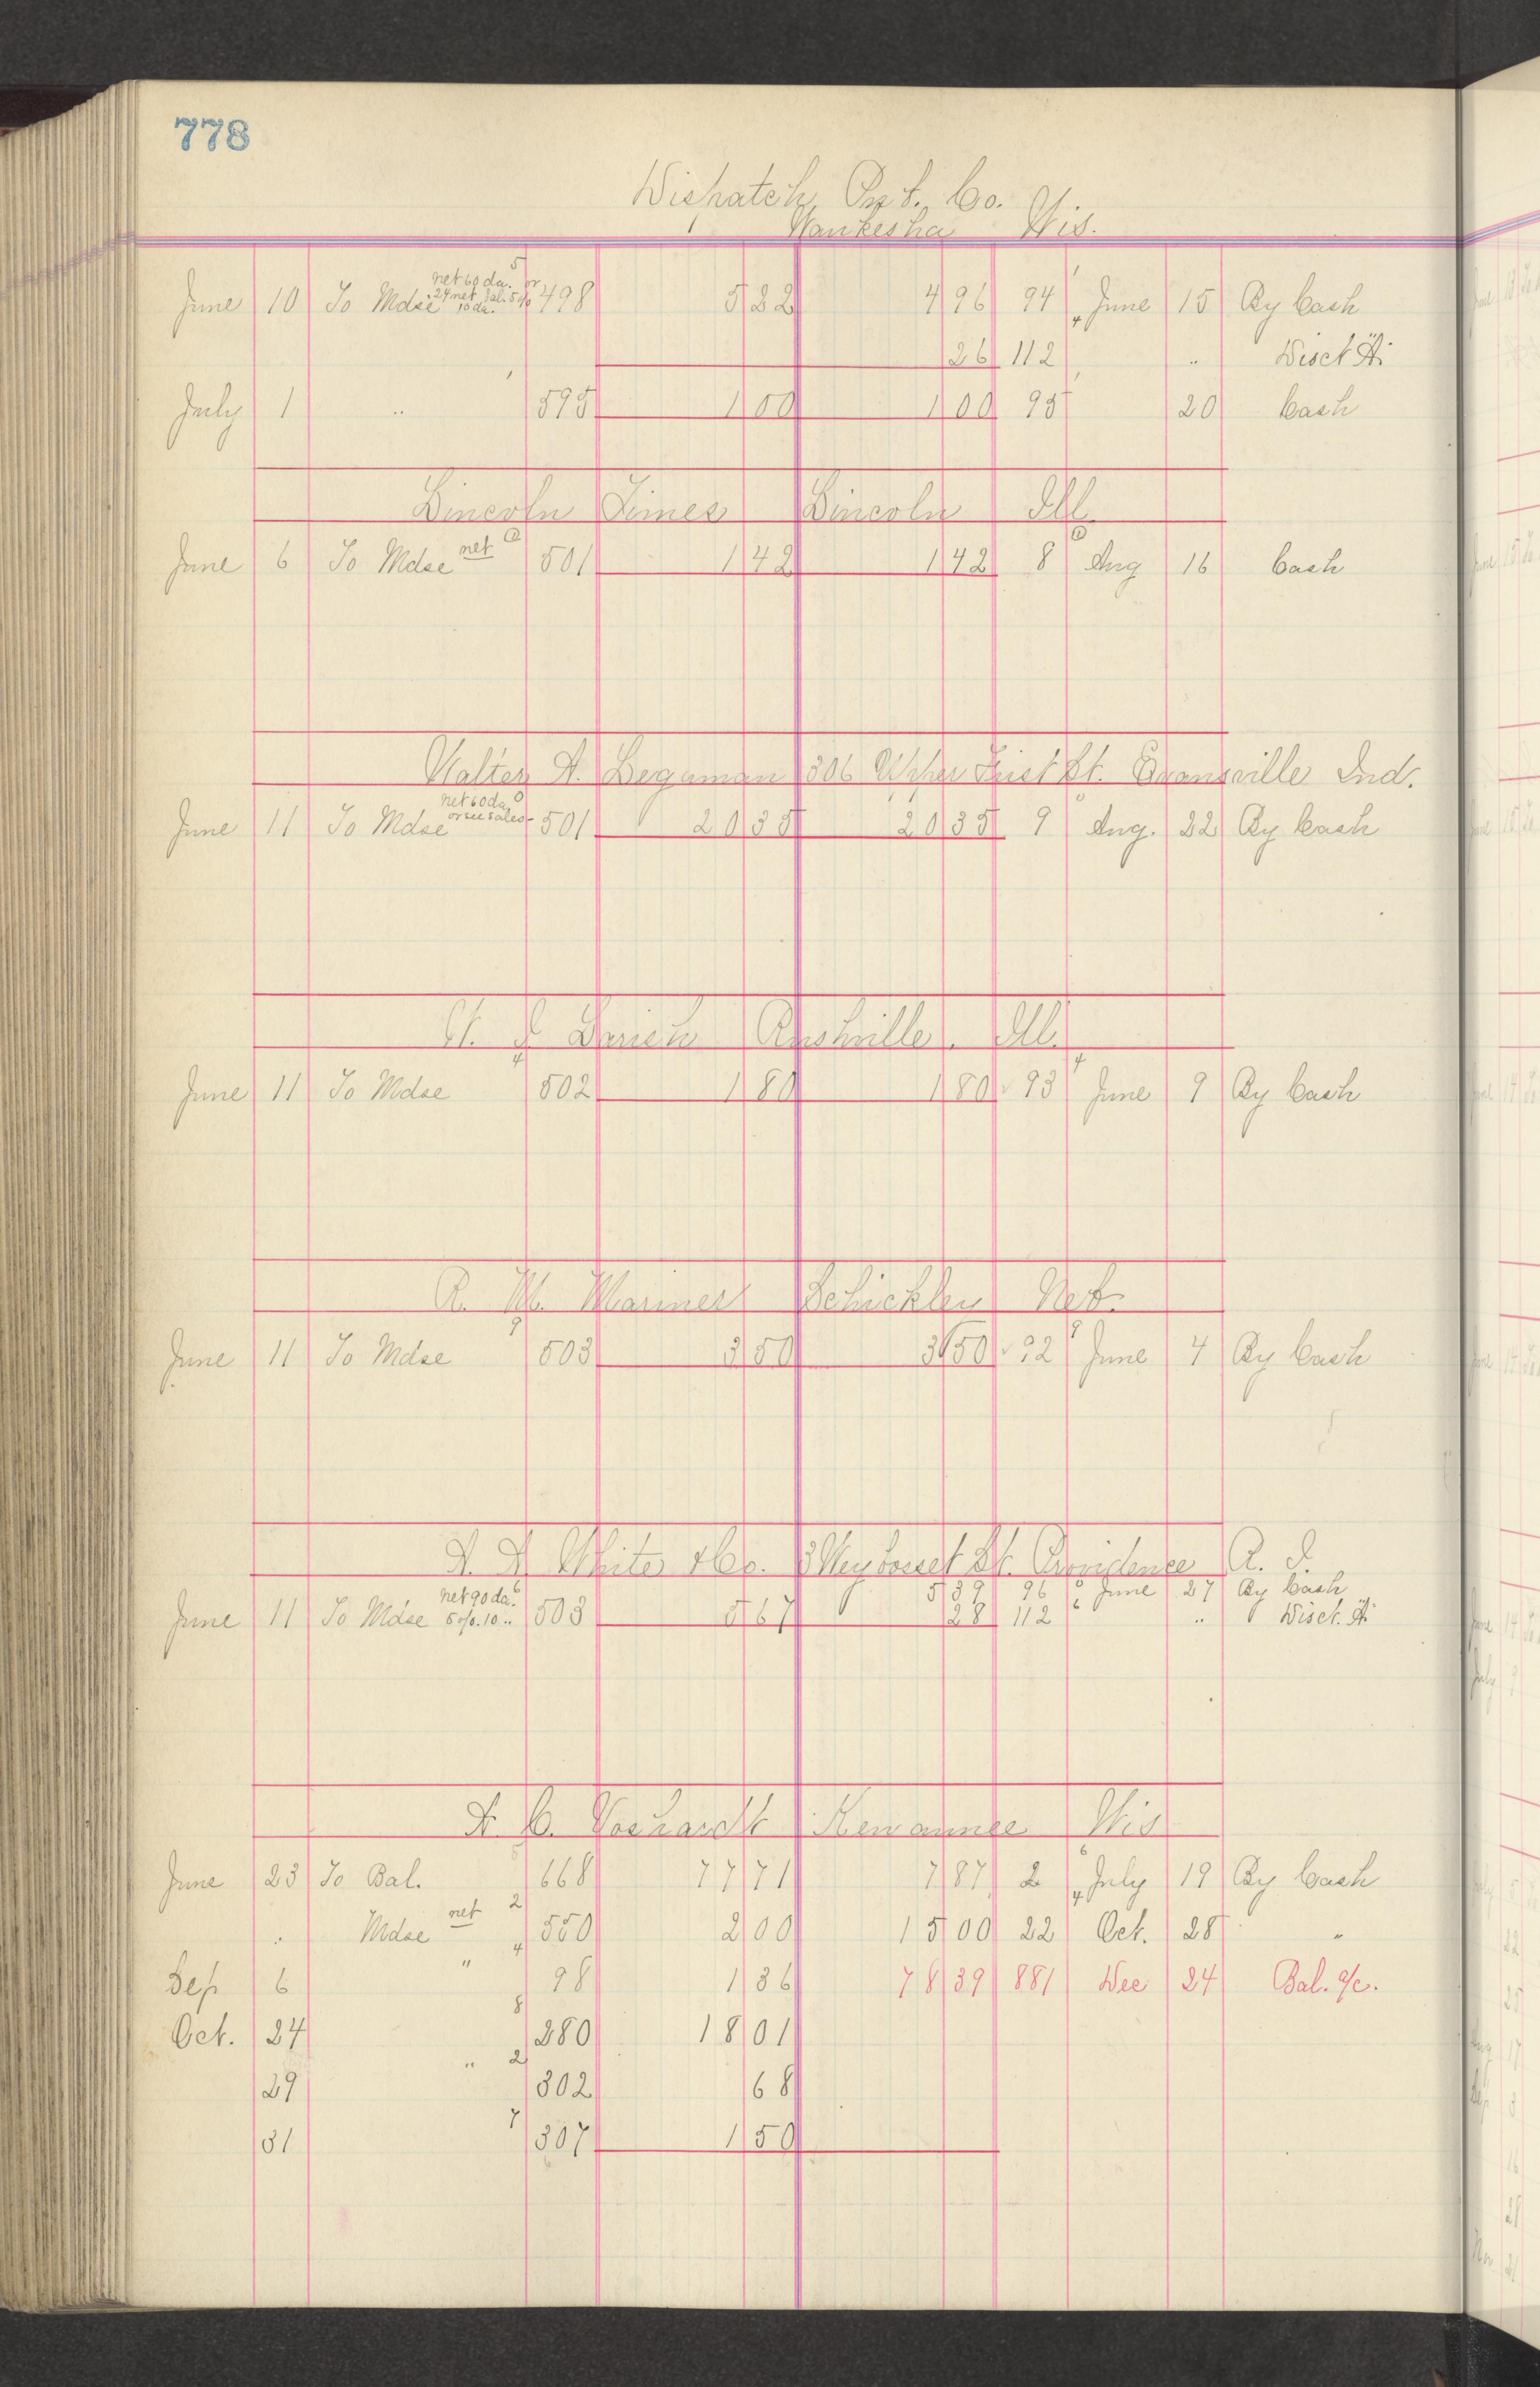 778
Dispatch Prt. Co.
Waukesha Wis.
5
net 60 da. or
June 10 To Mdse 24 net bal. 5% 498 5 22 4 96 94 June 15 By Cash
10 da.
26 112 " Disct
July 1 " 595 1 00 1 00 95 20 Cash
Lincoln Times Lincoln Ill.
June 6 To Mdse net 501 1 42 1 42 8 Aug 16 Cash
Walter A. Begaman 306 Upper First St. Evansville Ind.
net 60 da.
June 11 To Mdse or see sales 501 20 35 20 35 9 Aug. 22 By Cash
Rushville, Ill.
4 4
June 11 To Mdse 502 1 80 1 80 93 June 9 By Cash
R. M. Mariner Schickley Neb.
9 9
June 11 To Mdse 503 3 50 3 50 92 June 4 By Cash
White & Co. Weybosset St. Providence R. I.
net 90 da. 6 5 39 96 6 June 27 By Cash
June 11 To Mdse 5% 10 " 503 5 67 28 112 6 " Disct.
C. Voshardt Kewaunee Wis
June 23 To Bal. 668 77 71 7 87 2 July 19 By Cash
" Mdse net 2 550 2 00 15 00 22 Oct. 28 "
Sep 6 " 4 98 1 36 78 39 881 Dec 24 Bal. a/c.
Oct. 24 8 280 18 01
29 " 2 302 68
31 7 307 1 50